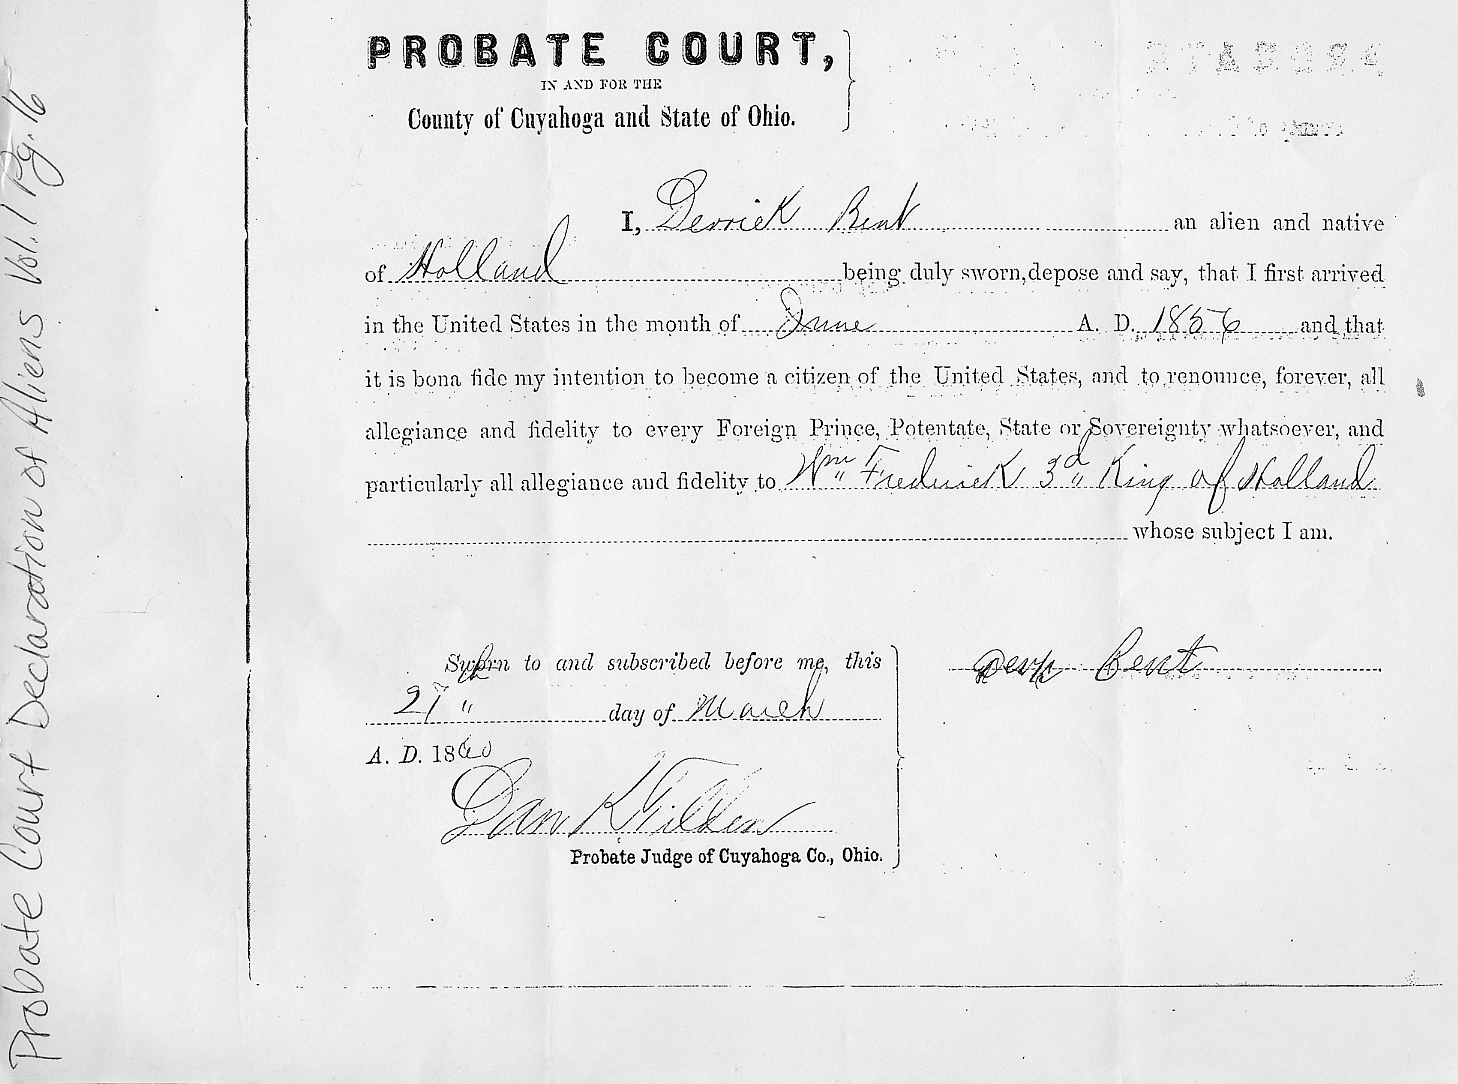 PROBATE COURT,
IN AND FOR THE
County of Cuyahoga and State of Ohio.
I, Derrick Bent an alien and native
of Holland being duly sworn, depose and say, that I first arrived
in the United States in the month of June A. D. 1856 and that
it is bona fide my intention to become a citizen of the United States, and to renounce, forever, all
allegiance and fidelity to every Foreign Prince, Potentate, State or Sovereignty whatsoever, and
particularly all allegiance and fidelity to Wm Frederick 3d King of Holland
whose subject I am.
Sworn to and subscribed before me, this
27" day of March
A. D. 1860
Dan R Tilden
Probate Judge of Cuyahoga Co., Ohio.
Bent
Probate Court Declaration of Aliens Vol. 1 Pg. 16